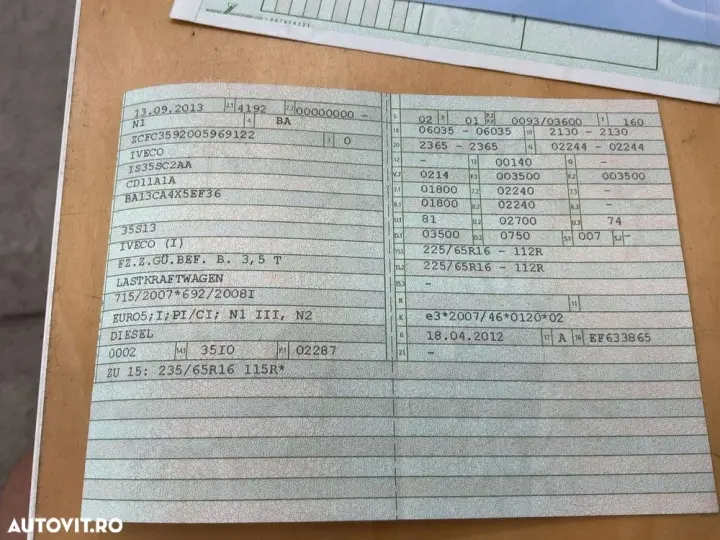 13.09.2013 2.1 4192 2.2 00000000 -
N1 4 BA
ZCFC3592005969122 3 0
IVECO
IS35SC2AA
CD11A1A
BA13CA4X5EF36
35S13
IVECO (I)
FZ.Z.GÜ.BEF. B. 3,5 T
LASTKRAFTWAGEN
715/2007*692/2008I
EURO5;I;PI/CI; N1 III, N2
DIESEL
0002 14.1 35I0 P.1 02287
ZU 15: 235/65R16 115R*
L 02 9 01 P.2 P.4 0093/03600 T 160
18 06035 - 06035 19 2130 - 2130
20 2365 - 2365 G 02244 - 02244
12 - 13 00140 Q -
V.7 0214 F.1 003500 F.2 003500
7.1 01800 7.2 02240 7.3 -
8.1 01800 8.2 02240 8.3 -
U.1 81 U.2 02700 U.3 74
O.1 03500 O.2 0750 S.1 007 S.2 -
15.1 225/65R16 - 112R
15.2 225/65R16 - 112R
15.3 -
R 11
K e3*2007/46*0120*02
6 18.04.2012 17 A 16 EF633865
21 -
AUTOVIT.RO